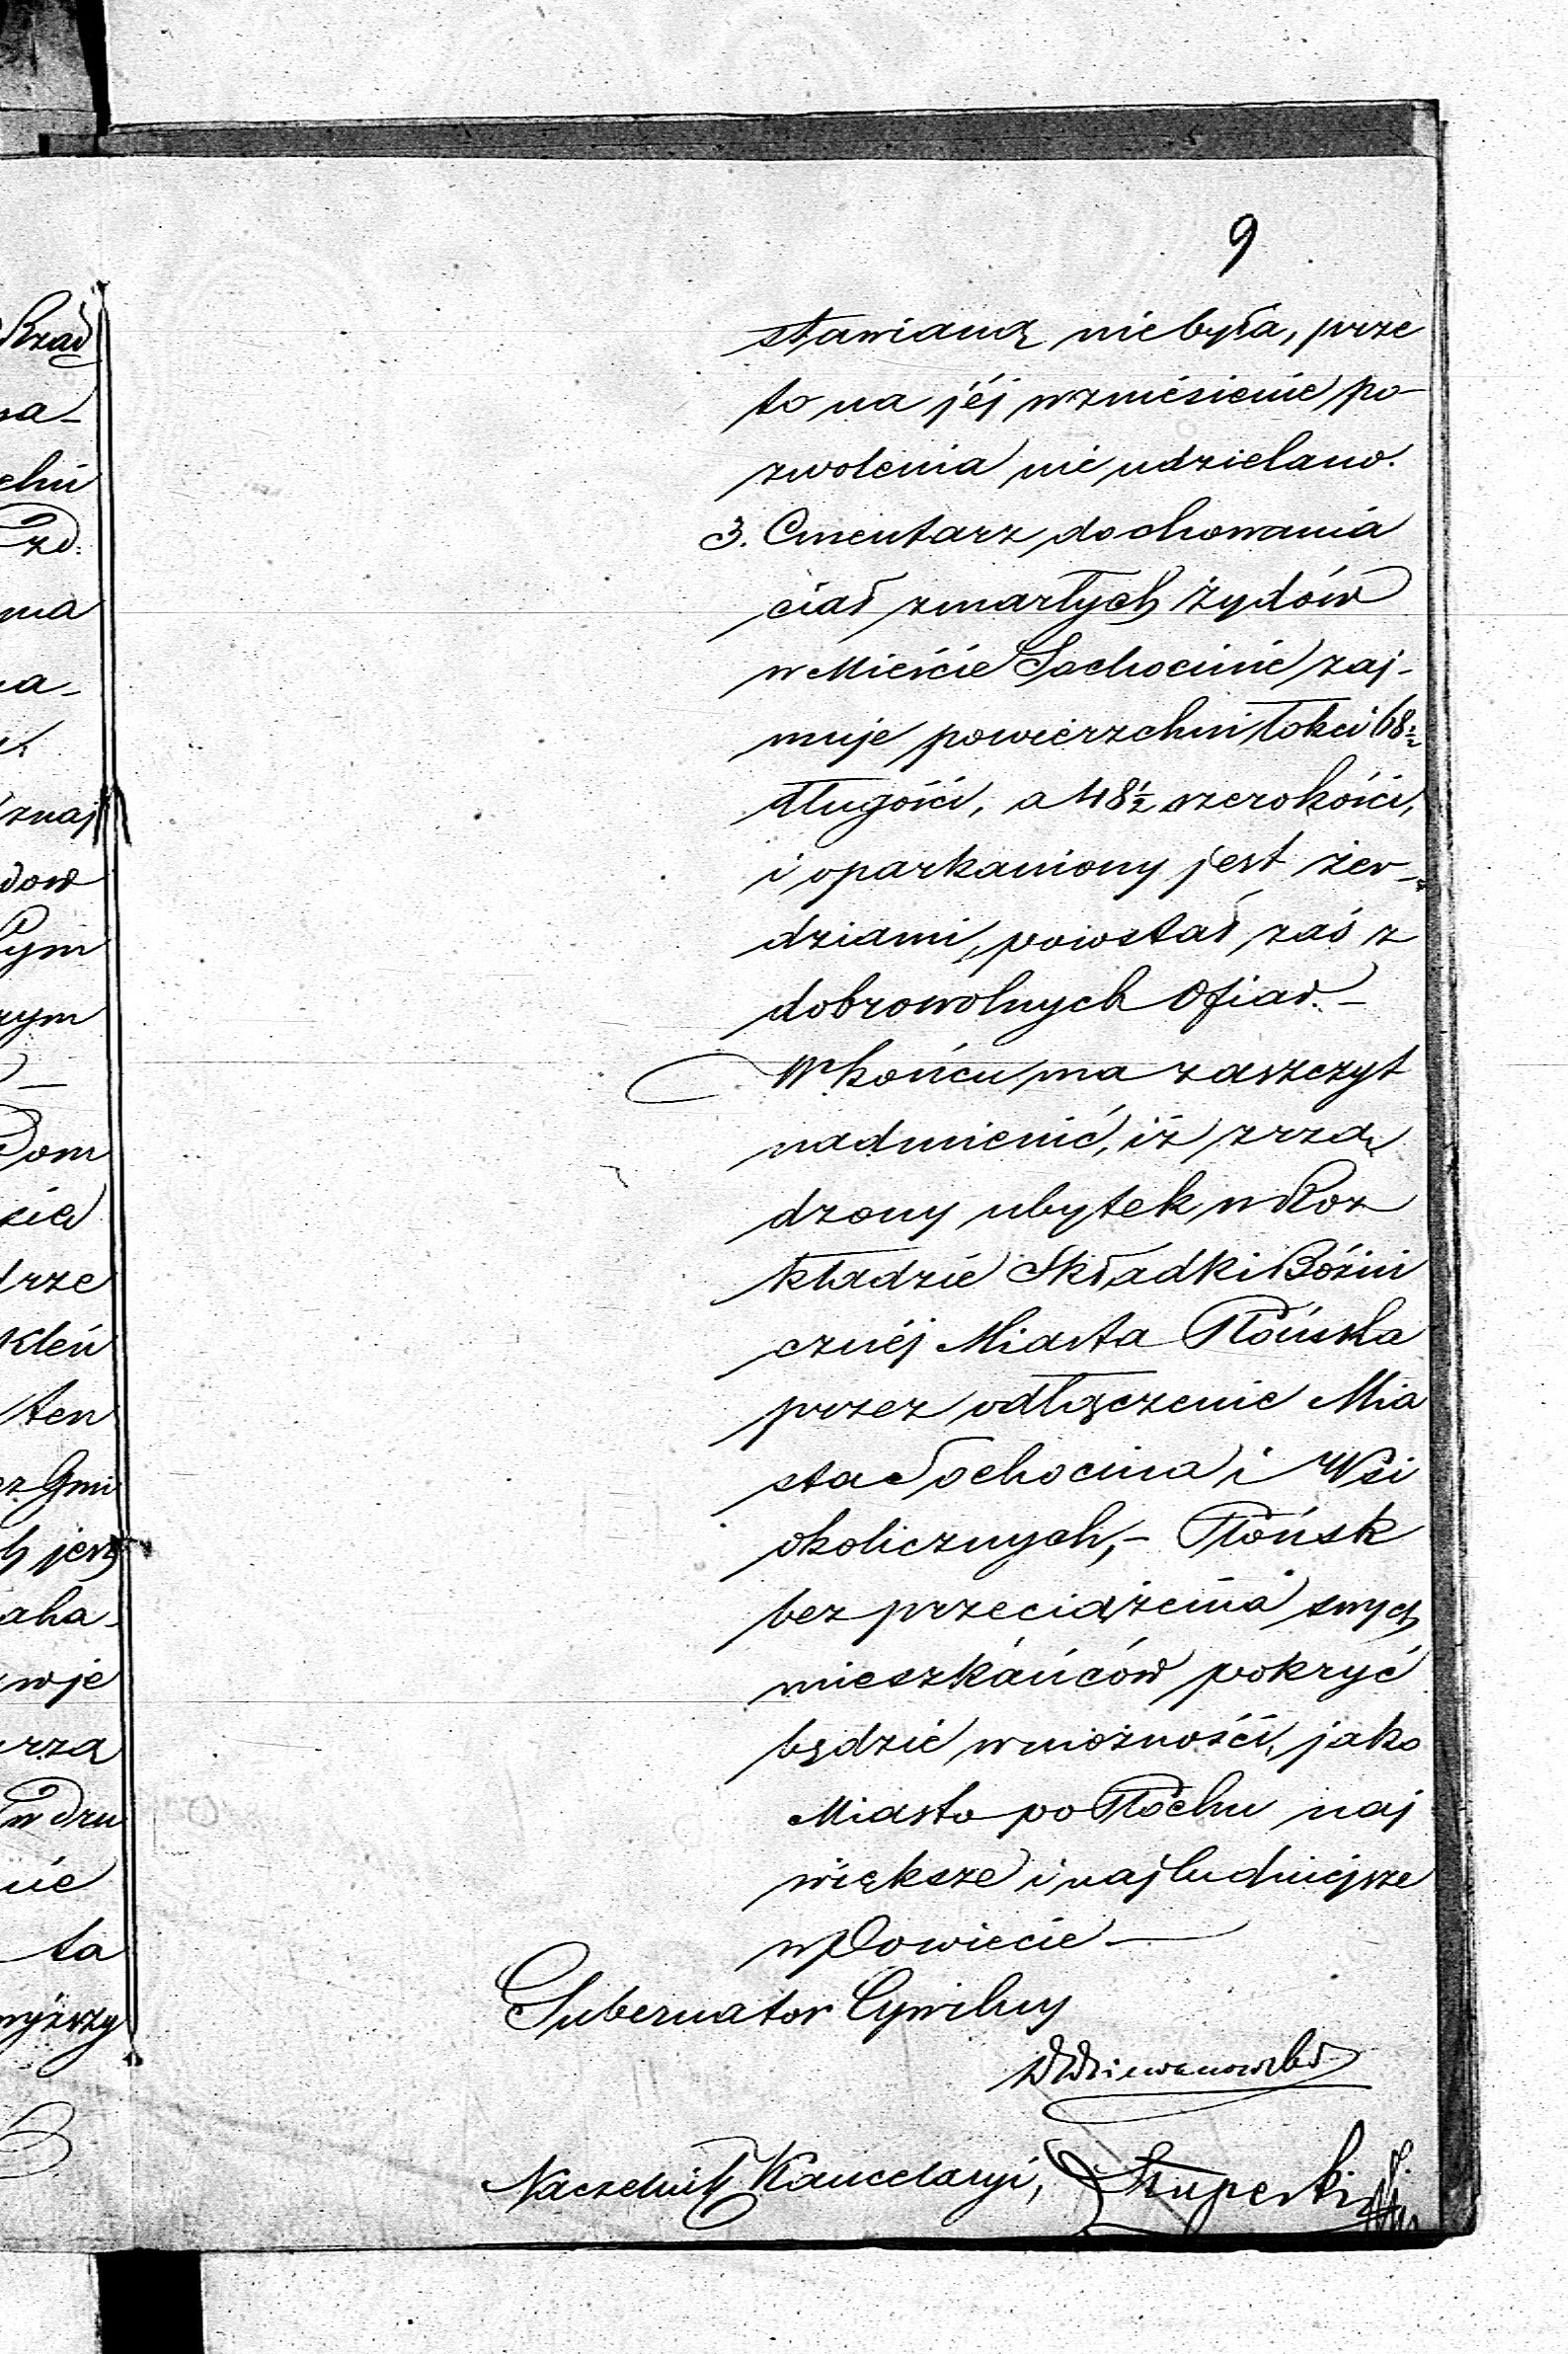 9
stawianą nie była, prze
to na jéj wzniesienie po-
zwolenia nie udzielano.
3. Cmentarz do chowania
ciał zmarłych żydów
w Mieście Sochocinie zaj-
muje powierzchni łokci 68½
długości, a 48½ szerokości,
i oparkaniony jest żer-
dziami, powstał zaś z
dobrowolnych Ofiar. -
W końcu ma zaszczyt
nadmienić, iż zrzą
dzony ubytek w Roz
kładzie Składki Bóżni
cznéj Miasta Płońska
przez odłączenie Mia
sta Sochocina i Wsi
okolicznych, - Płońsk
bez przeciążenia swych
mieszkańców pokryć
będzie w możności, jako
Miasto po Płocku naj
większe i najludniejsze
w Powiecie -
Gubernator Cywilny
Naczelnik Kancelaryi,
Rząd
na-
ma
znaj
dow
rym
Dom
drze
ten
ez Gmi
w dru
nie
ta
wyższy